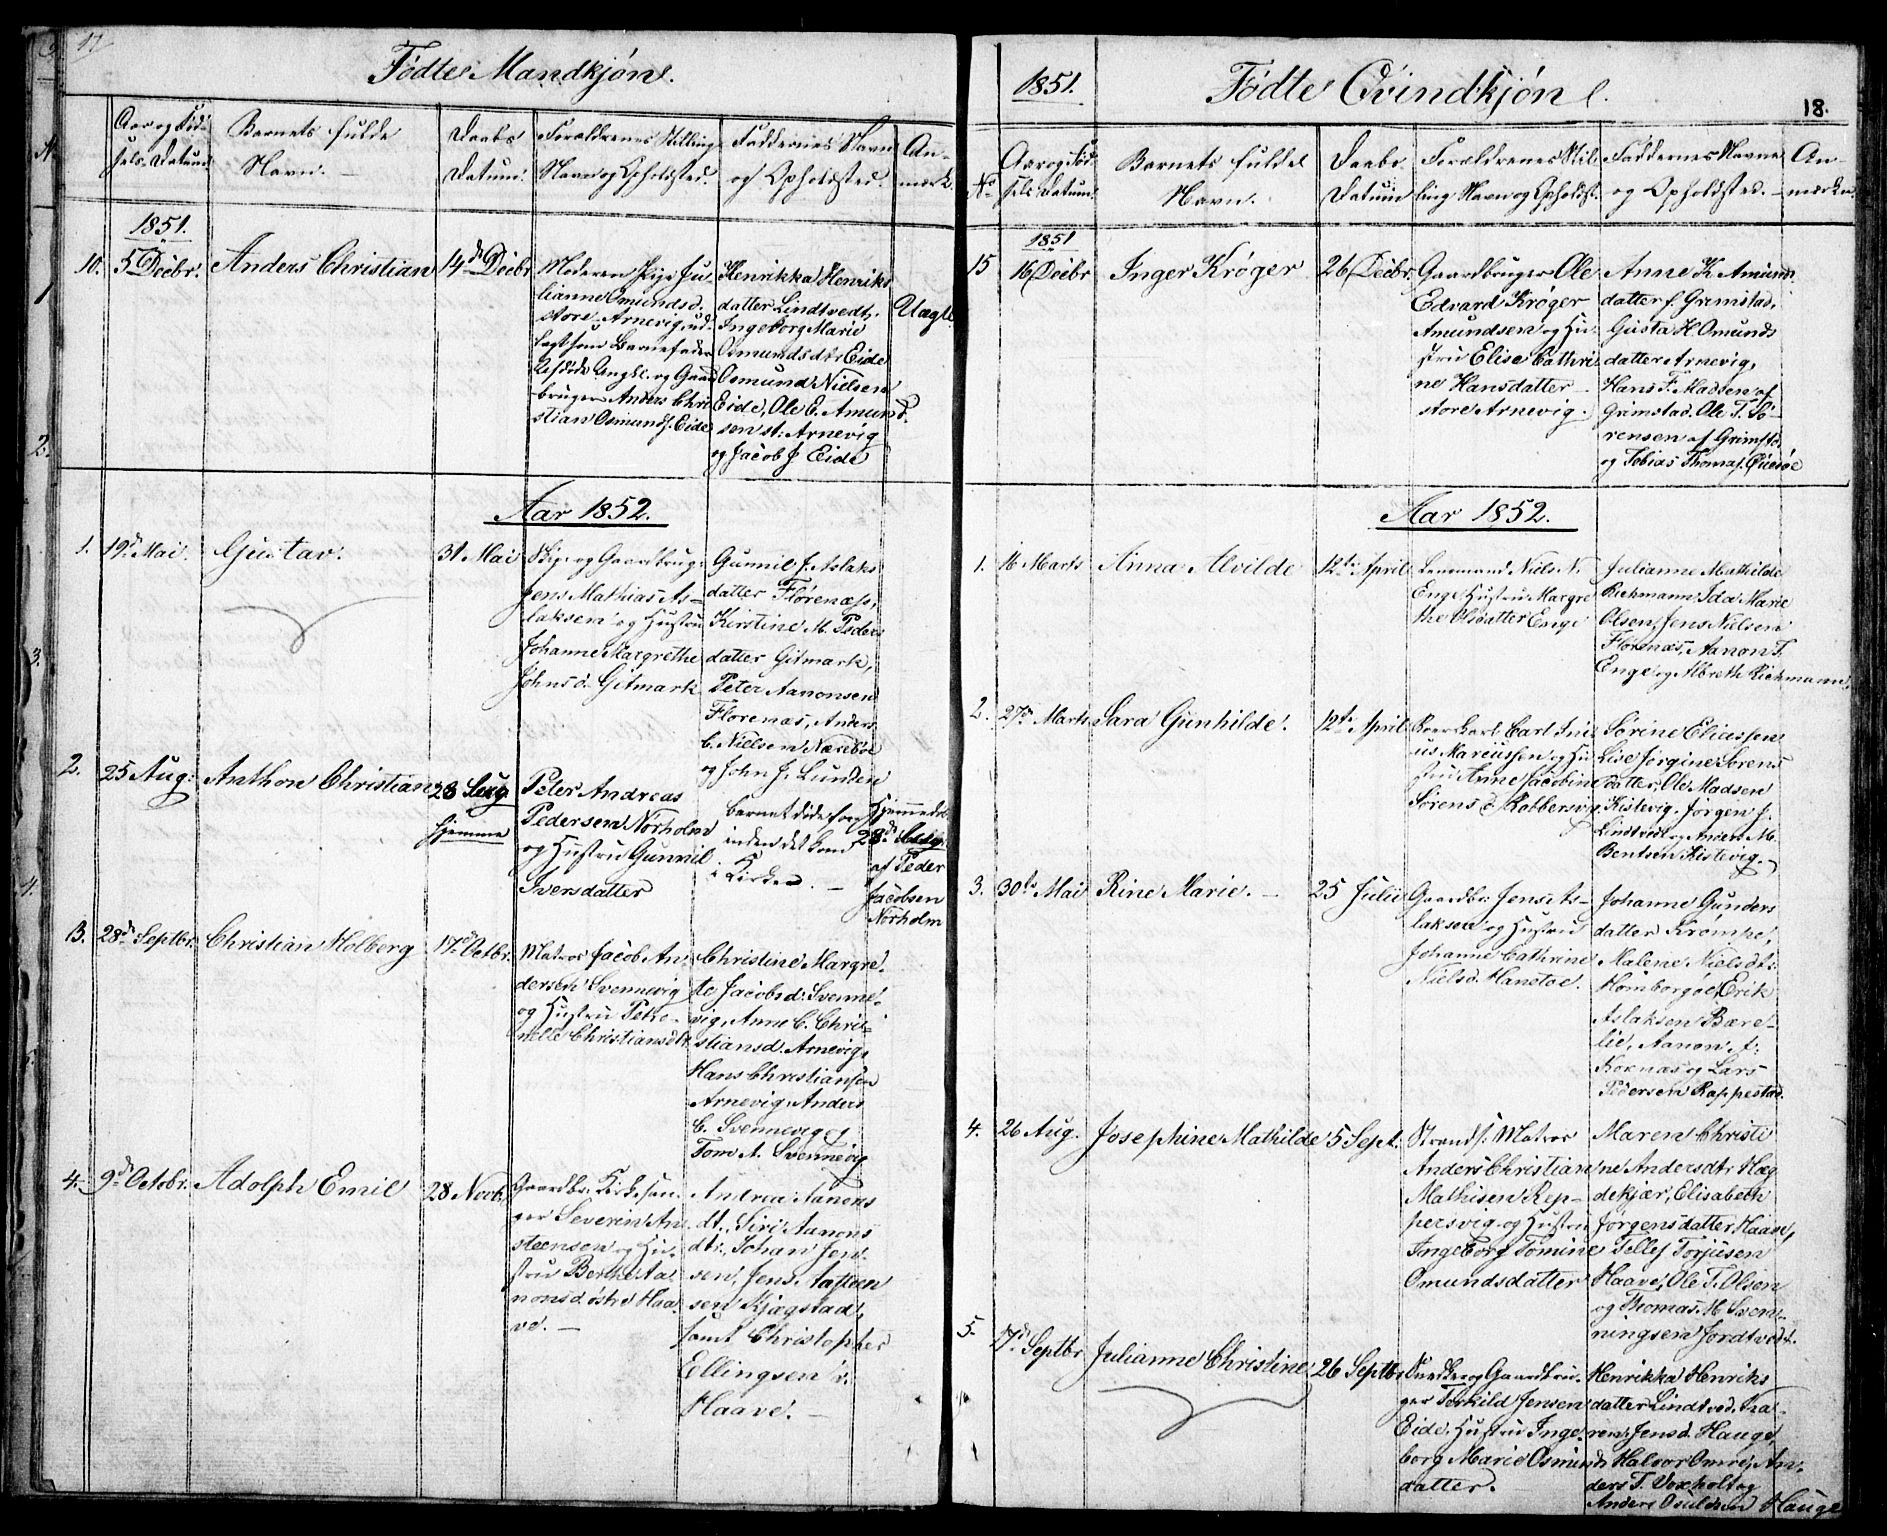 17
Fødte Mandkjøn.
N.
Aar og Fød-
sels-Datum.
Barnets fulde
Navn.
Daabs
Datum.
Forældrenes Stilling
Navn og Opholdsted.
Faddernes Navn
og Opholdsted.
An-
mærk.
1851.
10. 5 Decbr. Anders Christian 14de Decbr
Moderen Pige Ju-
lianne Omundsd.
store Arnevig, ud-
lagt som Barnefader
Afdøde Ungk. og Gaard
bruger Anders Chri
stian Osmunds. Eide
Henrikka Henriks
datter Lindtvedt,
Ingeborg Marie
Osmundsdtr Eide
Osmund Nielsen
Eide, Ole E. Amund
sen st: Arnevig
og Jacob J. Eide
Uægte
Aar 1852.
1. 19de Mai Gustav. 31 Mai
Skip- og Gaardbrug:
Jens Mathias As-
laksen og Hustru
Johanne Margrethe
Johnsd. Gitmark
Gunnil J. Aslaks
datter Florenæs,
Kirstine M. Peders
datter Gitmark,
Peter Aanonsen
Florenæs, Anders
C. Nielsen Næreboe
og John J. Lunden
2. 25 Aug: Anthon Christian 28 Aug.
hjemme
Peter Andreas
Pedersen Norholm
og Hustru Gunnil
Iversdatter
Barnet døde forinden det kom
i Kirken.
Hjemmedøbt
28de Aug.
af Peder
Jacobsen
Norholm
3. 28de Septbr. Christian Holberg 17de Octbr.
Matros Jacob An-
dersen Svennevig
og Hustru Petro-
nelle Christiansdtr.
Christine Margre-
te Jacobsd. Svenne-
vig, Anne C. Chris-
tiansd. Arnevig,
Hans Christiansen
Arnevig, Anders
C. Svennevig og
Tom A. Svennevig
4. 9de Octbr. Adolph Emil 28 Novb.
Gaardbr. Kirkesan-
ger Severin An-
steensen og Hu-
stru Berthe Aa-
nonsd østre Haa-
ve.
Andrea Aanons
dt., Siri Aanons
dtr, Johan Jen-
sen, Jens Aasteen
sen Kjægstad,
samt Christopher
Ellingsen ø.
Haave.
1851.
Fødte Qvindkjøn.
18.
No
Aar og Fød
sels Datum.
Barnets fulde
Navn.
Daabs-
Datum
Forældrenes Stil-
ling Navn og Opholdst.
Faddernes Navne
og Opholdsted.
An-
mærkn.
1851
15 16 Decbr Inger Krøger 26 Decbr.
Gaardbruger Ole
Edvard Krøger
Amundsen og Hu-
stru Elise Cathri
ne Hansdatter
store Arnevig.
Anne K. Amund
datter f. Grimstad,
Gusta H. Omunds
datter Arnevig,
Hans F. Madsen af
Grimstad. Ole T. Sø-
rensen af Grimstd.
og Tobias Thomas.
Aar 1852.
1. 16 Marts Anna Alvilde 12te April
Lensmand Niels N.
Enge, Hustru Margre
the Olsdatter Enge
Julianne Mathilde
Richmann, Ida Marie
Olsen, Jens Nielsen
Florenæs, Aanon T.
Enge og Albreth Richmann.
2. 27de Marts Sara Gunhilde. 12te April
Carl Juli
us Mariussen og Hu
stru Anne Jacobine
Sørens d. Robbersvig
Sørine Eliassen
Lise Jørgine Sørens
datter, Ole Madsen
Kistevig. Jørgen J.
Lindtvedt og Anders M.
Bentsen Kistevig.
3. 30te Mai Rine Marie. 25 Julii
Gaardbr: Jens As-
laksen og Hustru
Johanne Cathrine
Nielsd. Hanstoe.
Johanne Gunders
datter Krompe,
Malene Nielsdt:
Homborgoe, Erik
Aslaksen Bære-
lie, Aanon A:
Kornæs og Lars
Pedersen Rappestad.
4. 26 Aug. Josephine Mathilde 5 Sept.
Strands. Matros
Anders Christian
Mathisen Rep-
persvig og Hustru
Ingeborg Tomine
Omundsdatter
Maren Christi
ne Andersdtr Hæg
dekjær, Elisabeth
Jørgensdatter Haave,
Tellef Torjusen
Haave, Ole T. Olsen
og Thomas M. Svem-
ningsen Jordtvedt.
5. 7de Septbr Julianne Christine 26 Septbr.
og Gaardbru-
ger Terkild Jensen
Eide, Hustru Inge-
borg Marie Osmunds
datter.
Henrikka Henriks
datter Lindtved, Ma-
ren Jensd. Hauge,
Halvor Omre, An-
ders T. Voxholt og
Anders Osuldsen Hauge